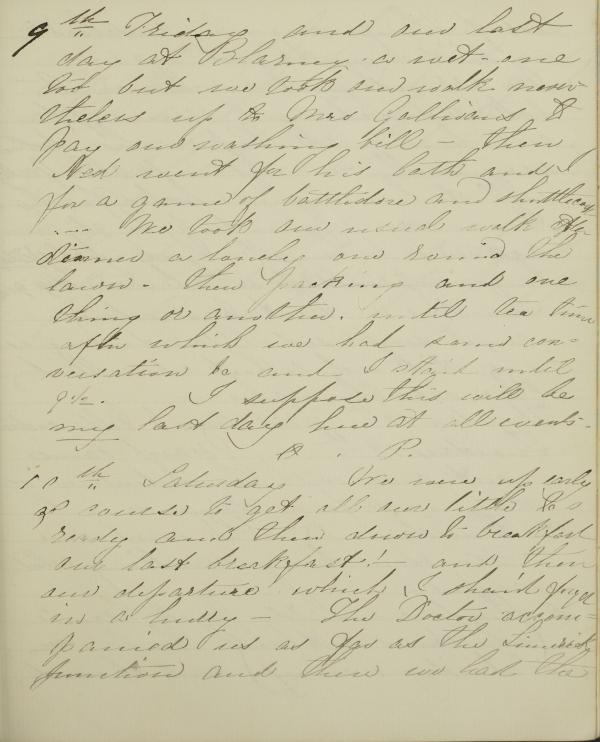 9th Friday and our last
day at Blarney a wet one
too but we took our walk never
theless up to Mrs Gallivans to
pay our washing bill - then
Ned went for his bath and I
for a game of battledore and shuttlecock
---- We took our usual walk after
dinner a lonely one round the
lawn - then packing and one
thing or another. until tea time
after which we had some con-
versation &c and I stayed until
9½. I suppose this will be
my last day here at all events.
P.
10th Saturday We were up early
of course to get all our little &cs
ready and then down to breakfast
our last breakfast! - and then
our departure which I shan't forget
in a hurry - The Doctor accom-
panied us as far as the Limerick
junction and there we had the